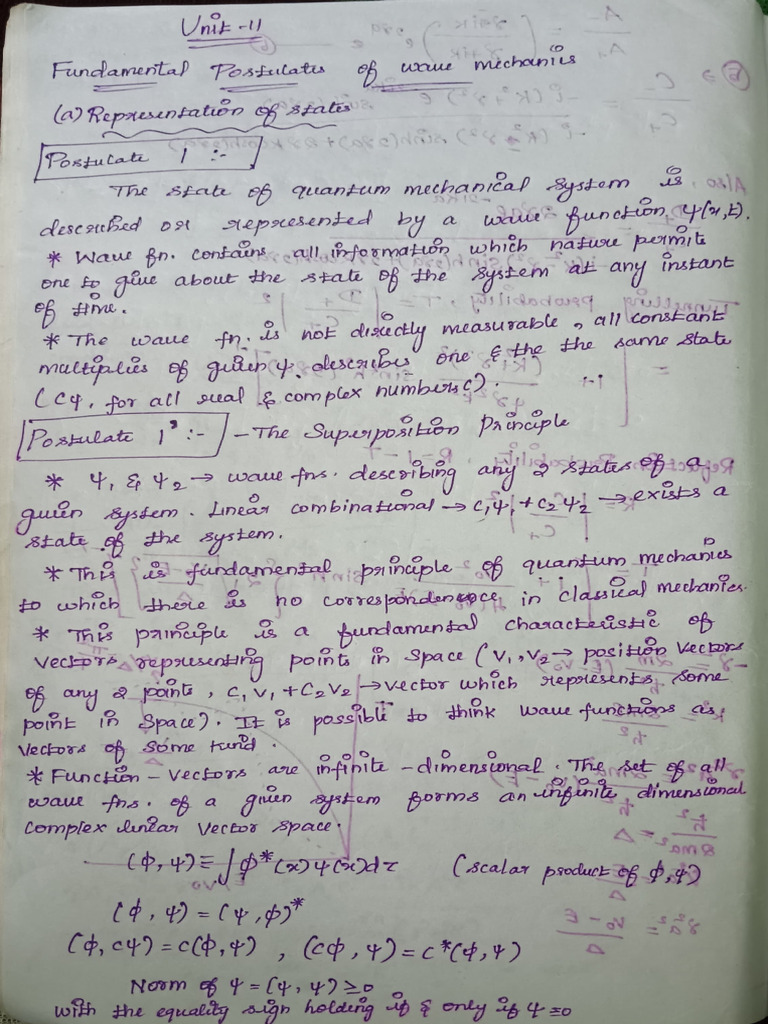 Unit-II
Fundamental Postulates of wave mechanics
(a) Representation of states
Postulate 1 :-
The state of quantum mechanical system is
described or represented by a wave function, ψ(x,t).
* Wave fn. contains all information which nature permits
one to give about the state of the system at any instant
of time.
* The wave fn. is not directly measurable, all constant
multiplies of given ψ describes one & the the same state
(cψ, for all real & complex numbers c).
Postulate 1' :- - The Superposition Principle
* ψ₁ & ψ₂ → wave fns. describing any 2 states of a
given system. Linear combinational → c₁ψ₁ + c₂ψ₂ → exists a
state of the system.
* This is fundamental principle of quantum mechanics
to which there is no correspondence in classical mechanics.
* This principle is a fundamental characteristic of
vectors representing points in space (v₁, v₂ → position vectors
of any 2 points, c₁v₁ + c₂v₂ → vector which represents some
point in space). It is possible to think wave functions as
vectors of some kind.
* Function-vectors are infinite-dimensional. The set of all
wave fns. of a given system forms an infinite dimensional
complex linear vector space.
(ϕ, ψ) ≡ ∫ϕ*(x)ψ(x)dτ (scalar product of ϕ, ψ)
(ϕ, ψ) = (ψ, ϕ)*
(ϕ, cψ) = c(ϕ, ψ) , (cϕ, ψ) = c*(ϕ, ψ)
Norm of ψ = (ψ, ψ) ≥ 0
with the equality sign holding if & only if ψ ≡ 0